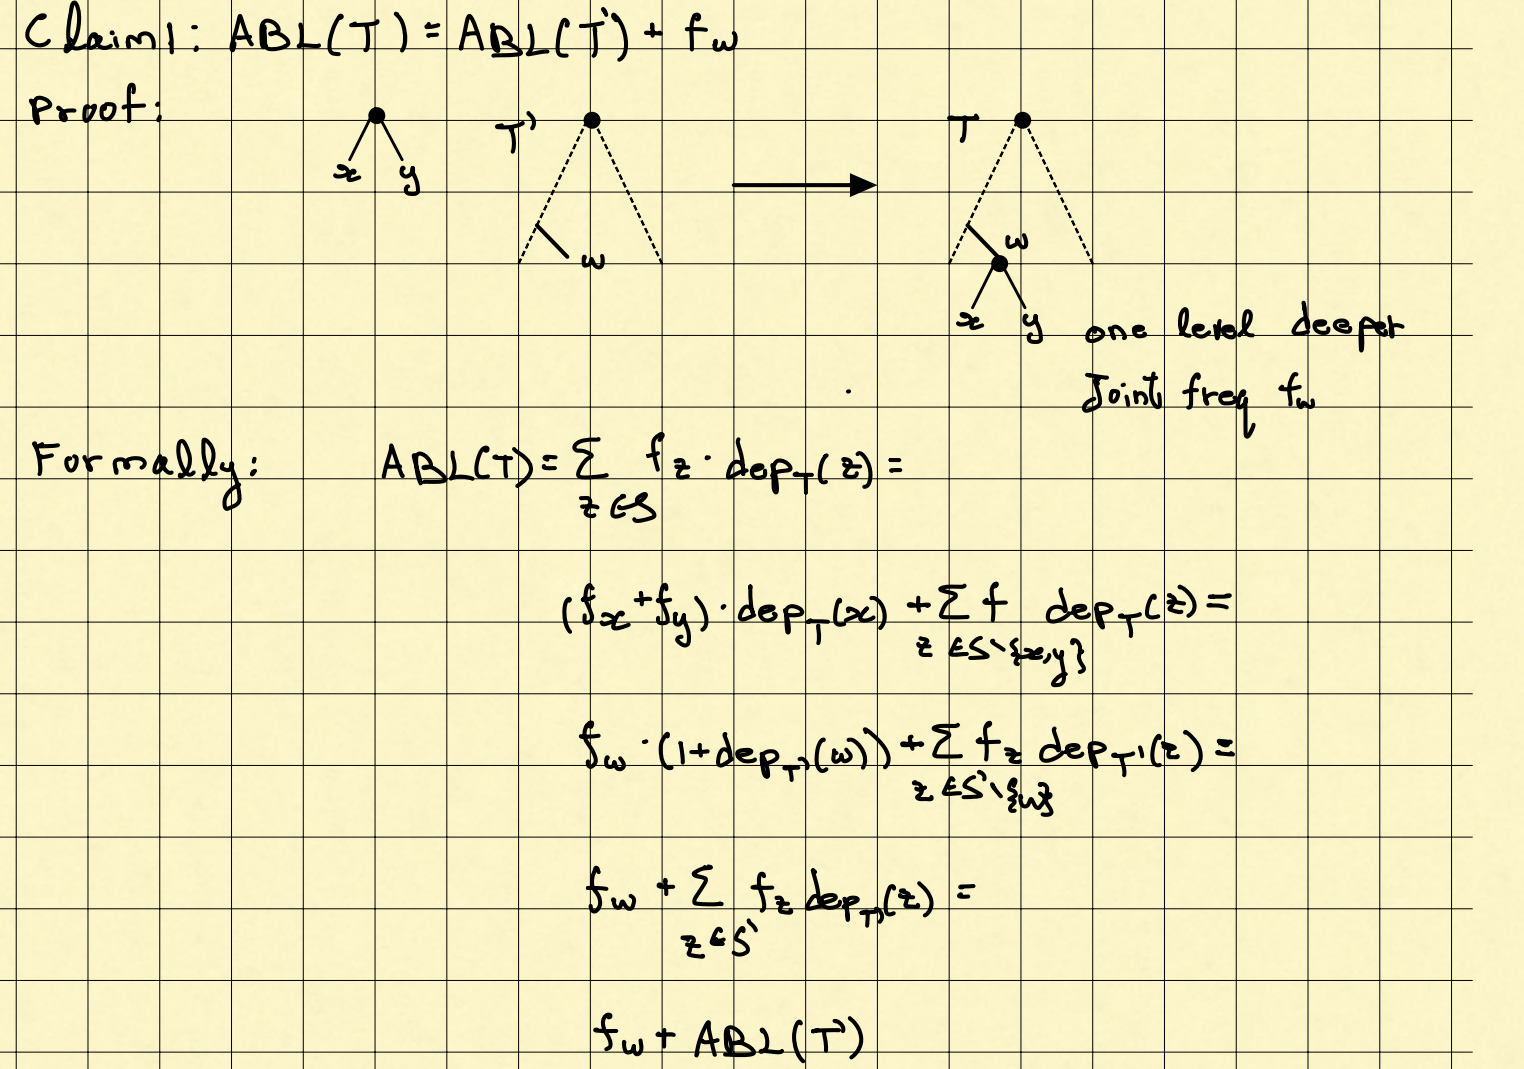 Claim 1: ABL(T) = ABL(T') + f_w
Proof:
x y
T'
w
T
w
x y
one level deeper
Joint freq f_w
Formally: ABL(T) = Σ_{z∈S} f_z · dep_T(z) =
(f_x + f_y) · dep_T(x) + Σ_{z∈S\{x,y}} f dep_T(z) =
f_w · (1 + dep_T'(w)) + Σ_{z∈S'\{w}} f_z dep_T'(z) =
f_w + Σ_{z∈S'} f_z dep_T'(z) =
f_w + ABL(T')